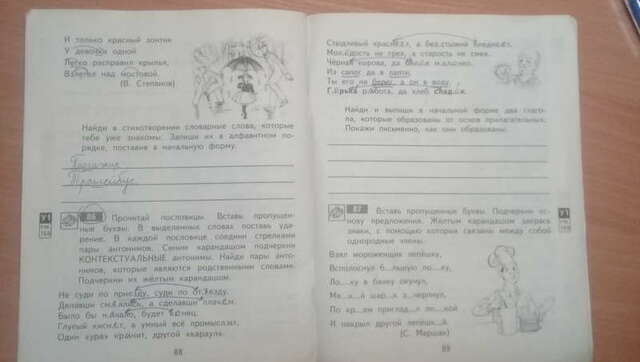 И только красный зонтик
У девочки одной
Легко расправил крылья,
Взлетев над мостовой.
(В. Степанов)
Найди в стихотворении словарные слова, которые
тебе уже знакомы. Запиши их в алфавитном по-
рядке, поставив в начальную форму.
У1
86 Прочитай пословицы. Вставь пропущен-
ные буквы. В выделенных словах поставь уда-
рение. В каждой пословице соедини стрелками
пары антонимов. Синим карандашом подчеркни
КОНТЕКСТУАЛЬНЫЕ антонимы. Найди пары анто-
нимов, которые являются родственными словами.
Подчеркни их жёлтым карандашом.
Не суди по приезду, суди по отъезду.
Делавши смеялись, а сделавши плачем.
Было бы начало, будет конец.
Глупый киснет, а умный всё промыслит.
Один кура хранит, другой
88
Стыдливый краснеет, а бесстыжий бледнеет.
Молодость не грех, а старость не смех.
Чёрная корова, да бело молочко.
Из сапог да в лапти.
Ты его на берег, а он в воду.
Горька работа, да хлеб сладок.
Найди и выпиши в начальной форме два глаго-
ла, которые образованы от основ прилагательных.
Покажи письменно, как они образованы.
87 Вставь пропущенные буквы. Подчеркни ос-
нову предложения. Жёлтым карандашом закрась
знаки, с помощью которых связаны между собой
однородные члены.
У1
Взял мороженщик лепёшку,
Всполоснул б...льшую ло...ку,
Ло...ку в банку окунул,
Мя...к... шар...к з...черпнул,
По кр...ям пригладил ло...кой
И накрыл другой лепёшк...й.
(С. Маршак)
89